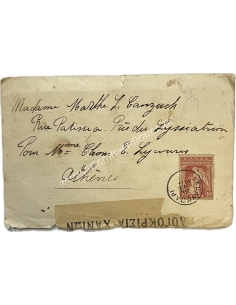 Madame Marthe L. Canzuch
Rue Patissia. Près du Lyssiatrion
Pour Mme Chom. E. Lycouris
Athènes
ΛΟΓΟΚΡΙΣΙΑ ΧΑΝΙΩΝ